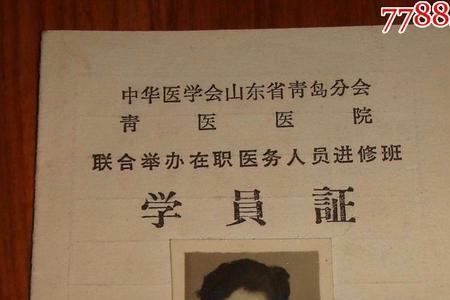 7788
中华医学会山东省青岛分会
青医医院
联合举办在职医务人员进修班
学員証